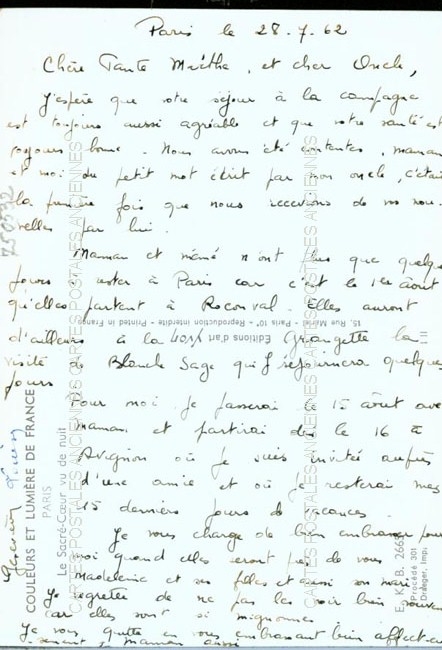 Paris le 28.7.62
Chère Tante Marthe, et cher Oncle,
J'espère que votre séjour à la campagne
est toujours aussi agréable et que votre santé est
toujours bonne. Nous avons été contentes, maman
et moi du petit mot écrit par mon oncle, c'était
la première fois que nous recevions de vos nou-
velles par lui.
Maman et mémé n'ont plus que quelques
jours à rester à Paris car c'est le 1er août
qu'elles partent à Roconval. Elles auront
d'ailleurs à la Grangette la
visite de Blanche Sage qui y séjournera quelques
jours
Pour moi je passerai le 15 août avec
maman et partirai dès le 16 à
Avignon où je suis invitée auprès
d'une amie et où je resterai mes
15 derniers jours de vacances.
Je vous charge de bien embrasser pour
moi quand elles seront près de vous
Madeleine et ses filles et aussi son mari
Je regrette de ne pas les voir bien souvent
car elles sont si mignonnes
Je vous quitte en vous embrassant bien affectueu-
sement, maman aussi
COULEURS ET LUMIÈRE DE FRANCE
PARIS
Le Sacré-Cœur vu de nuit
Editions d'art Yvon
15, Rue Martel - Paris - 10e - Reproduction interdite - Printed in France
E. K. B. 266
Procédé 301
Draeger, Imp.
CARTES POSTALES ANCIENNES
750592